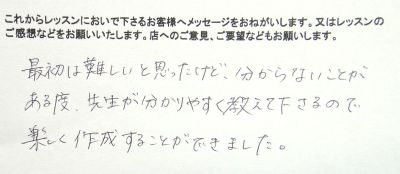 これからレッスンにおいで下さるお客様へメッセージをおねがいします。又はレッスンの
ご感想などをお願いいたします。店へのご意見、ご要望などもお願いします。
最初は難しいと思ったけど、分からないことが
ある度、先生が分かりやすく教えて下さるので
楽しく作成することができました。